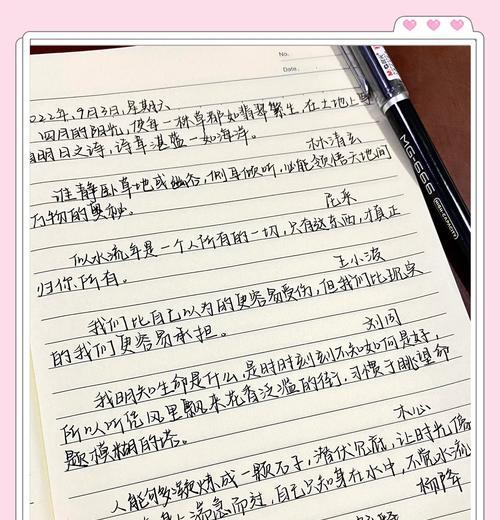 No.
Date.
2022年9月3日,星期六
四月的阳光,使每一株草都如翡翠繁生,在土地上写
明日之诗,诗草湛蓝一如海洋。
林清玄
谁静卧草地或幽谷,侧耳倾听,必能领悟天地间
万物的奥秘。
似水流年是一个人所有的一切,只有这东西,才真正
归你所有。
王小波
我们比自己以为的更容易受伤,但我们比现实
的我们更容易承担。
刘同
我明知生命是什么,是时时刻刻不知如何是好,
所以听凭风里飘来花香泛滥的街,习惯于眺望命
题模糊的塔。
木心
人能够凝炼成一颗石子,潜伏见底,让时光像
身上湍急而过,自己只知身在水中,不觉水流
杨绛
MG-666
HIGH-CAPACITY